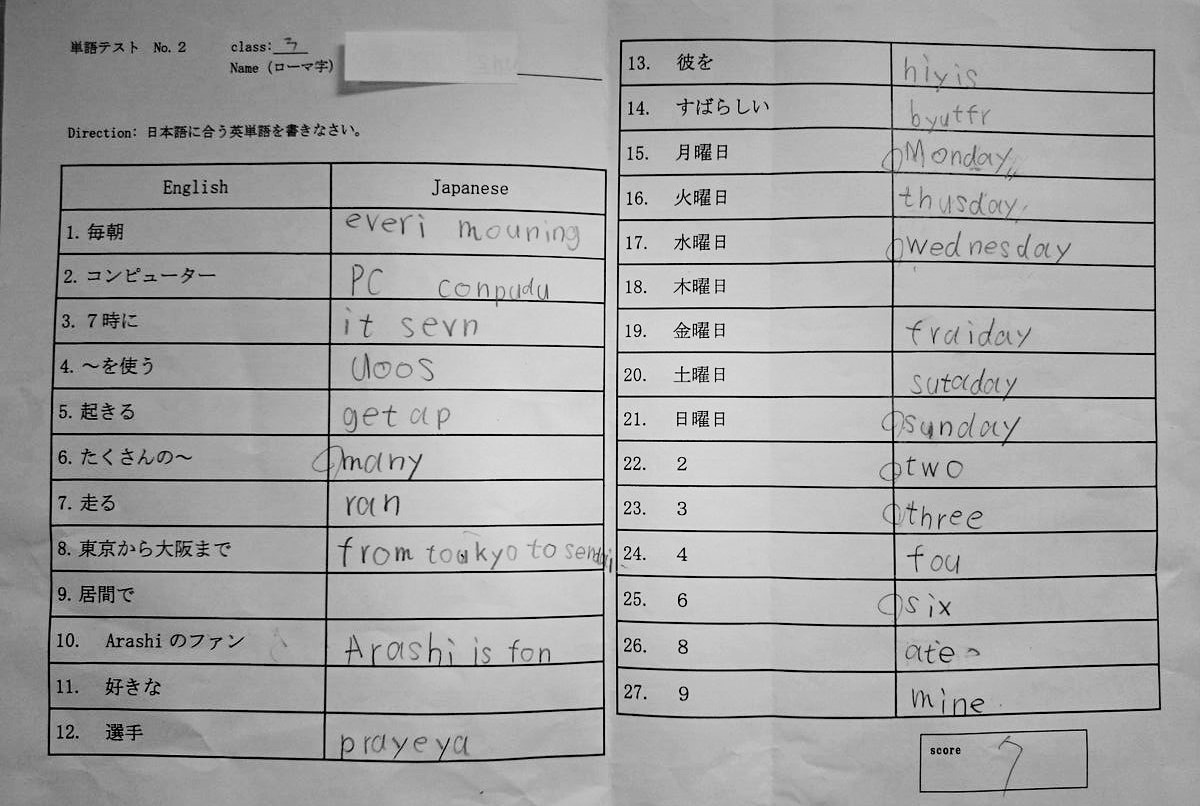 単語テスト No.2 class: 7
Name (ローマ字)
Direction: 日本語に合う英単語を書きなさい。
English Japanese
1. 毎朝 everi mouning
2. コンピューター PC conpudu
3. 7時に it sevn
4. ～を使う uoos
5. 起きる get ap
6. たくさんの～ many
7. 走る ran
8. 東京から大阪まで from toukyo to sendai
9. 居間で
10. Arashiのファン Arashi is fon
11. 好きな
12. 選手 prayeya
13. 彼を hiyis
14. すばらしい byutfr
15. 月曜日 Monday
16. 火曜日 thusday
17. 水曜日 wednesday
18. 木曜日
19. 金曜日 fraiday
20. 土曜日 sutaday
21. 日曜日 sunday
22. 2 two
23. 3 three
24. 4 fou
25. 6 six
26. 8 ate
27. 9 mine
score 7